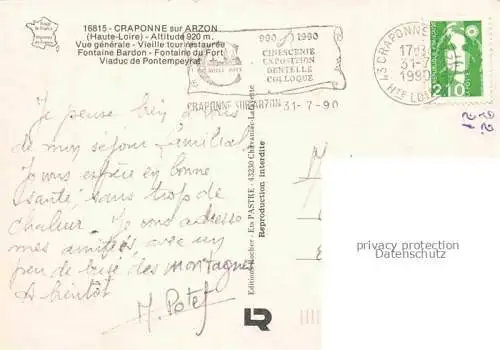 16815 - CRAPONNE sur ARZON
(Haute-Loire) - Altitude 920 m.
Vue générale - Vieille tour restaurée
Fontaine Bardon - Fontaine du Fort
Viaduc de Pontempeyrat
990 1990
CINESCENIE
EXPOSITION
DENTELLE
COLLOQUE
CRAPONNE SUR ARZON 31-7-90
43 CRAPONNE
17H
31-7
1990
HTE LOI
2,10
Je pense bien à vous
de mon séjour familial.
Je vous espère en bonne
santé, sans trop de
chaleur. Je vous adresse
mes amitiés avec un
peu de bise des montagnes
A bientôt
Editions Rocher - Ets PASTRE, 43230 Chavaniac-Lafayette
Reproduction interdite
privacy protection
Datenschutz